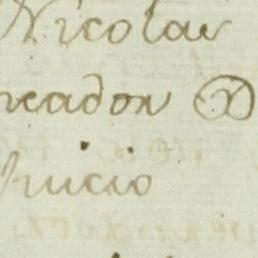 Nicolas
rcador D
Juicio